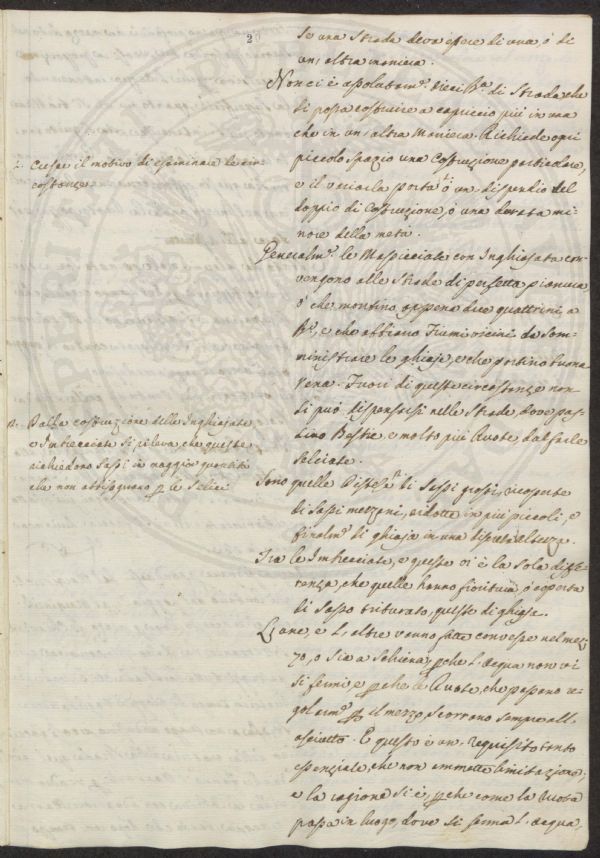 20
se una Strada deva essere di una, ó di
un, altra maniera.
Non ci è assolutam.e dieci B.a di Strada, che
si possa costruire a capriccio più in una
che in un, altra Maniera. Richiede ogni
piccolo spazio una Costruzione particolare,
e il variarla porta ó un dispendio del
doppio di Costruzione, ó una durata mi=
nore della metà.
Generalm.e le Massicciate con Inghiajata con=
vengono alle Strade di perfetta pianura
ó che montino appena due quattrini, a
B.a, e che abbiano Fiumi vicini da som=
ministrare le ghiaje, e che portino buona
rena. Fuori di queste circostanze non
si può dispensarsi nelle Strade, dove pas=
sino Bestie, e molto più Ruote dal farle
selciate.
Sono quelle Distese di Sassi grossi, ricoperte
di Sassi mezzani, ridotti in più piccoli, e
finalm.e di ghiaja in una
Tra le Imbrecciate, e queste vi è la sola diffe=
renza, che quelle hanno fioritura, ó coperta
di Sasso triturato, queste di ghiaja.
L, une, e l, altre vanno fatte convesse nel mez=
zo, o sia a Schiena, p che l, acqua non vi
si fermi, e p che le Ruote, che passano re=
golarm.e p il mezzo, scorrano sempre all,
asciutto. E questo è un, requisito tanto
essenziale, che non ammette limitazione,
e la ragione si è, p che come la Ruota
passa in luogo, dove si ferma l, acqua,
1. il motivo di esaminare le cir=
costanze
2. Dalla costruzione delle Inghiajate
e Imbrecciate si rileva, che queste
richiedono Sassi in maggior quantità
che non abbisognano p le Selciate